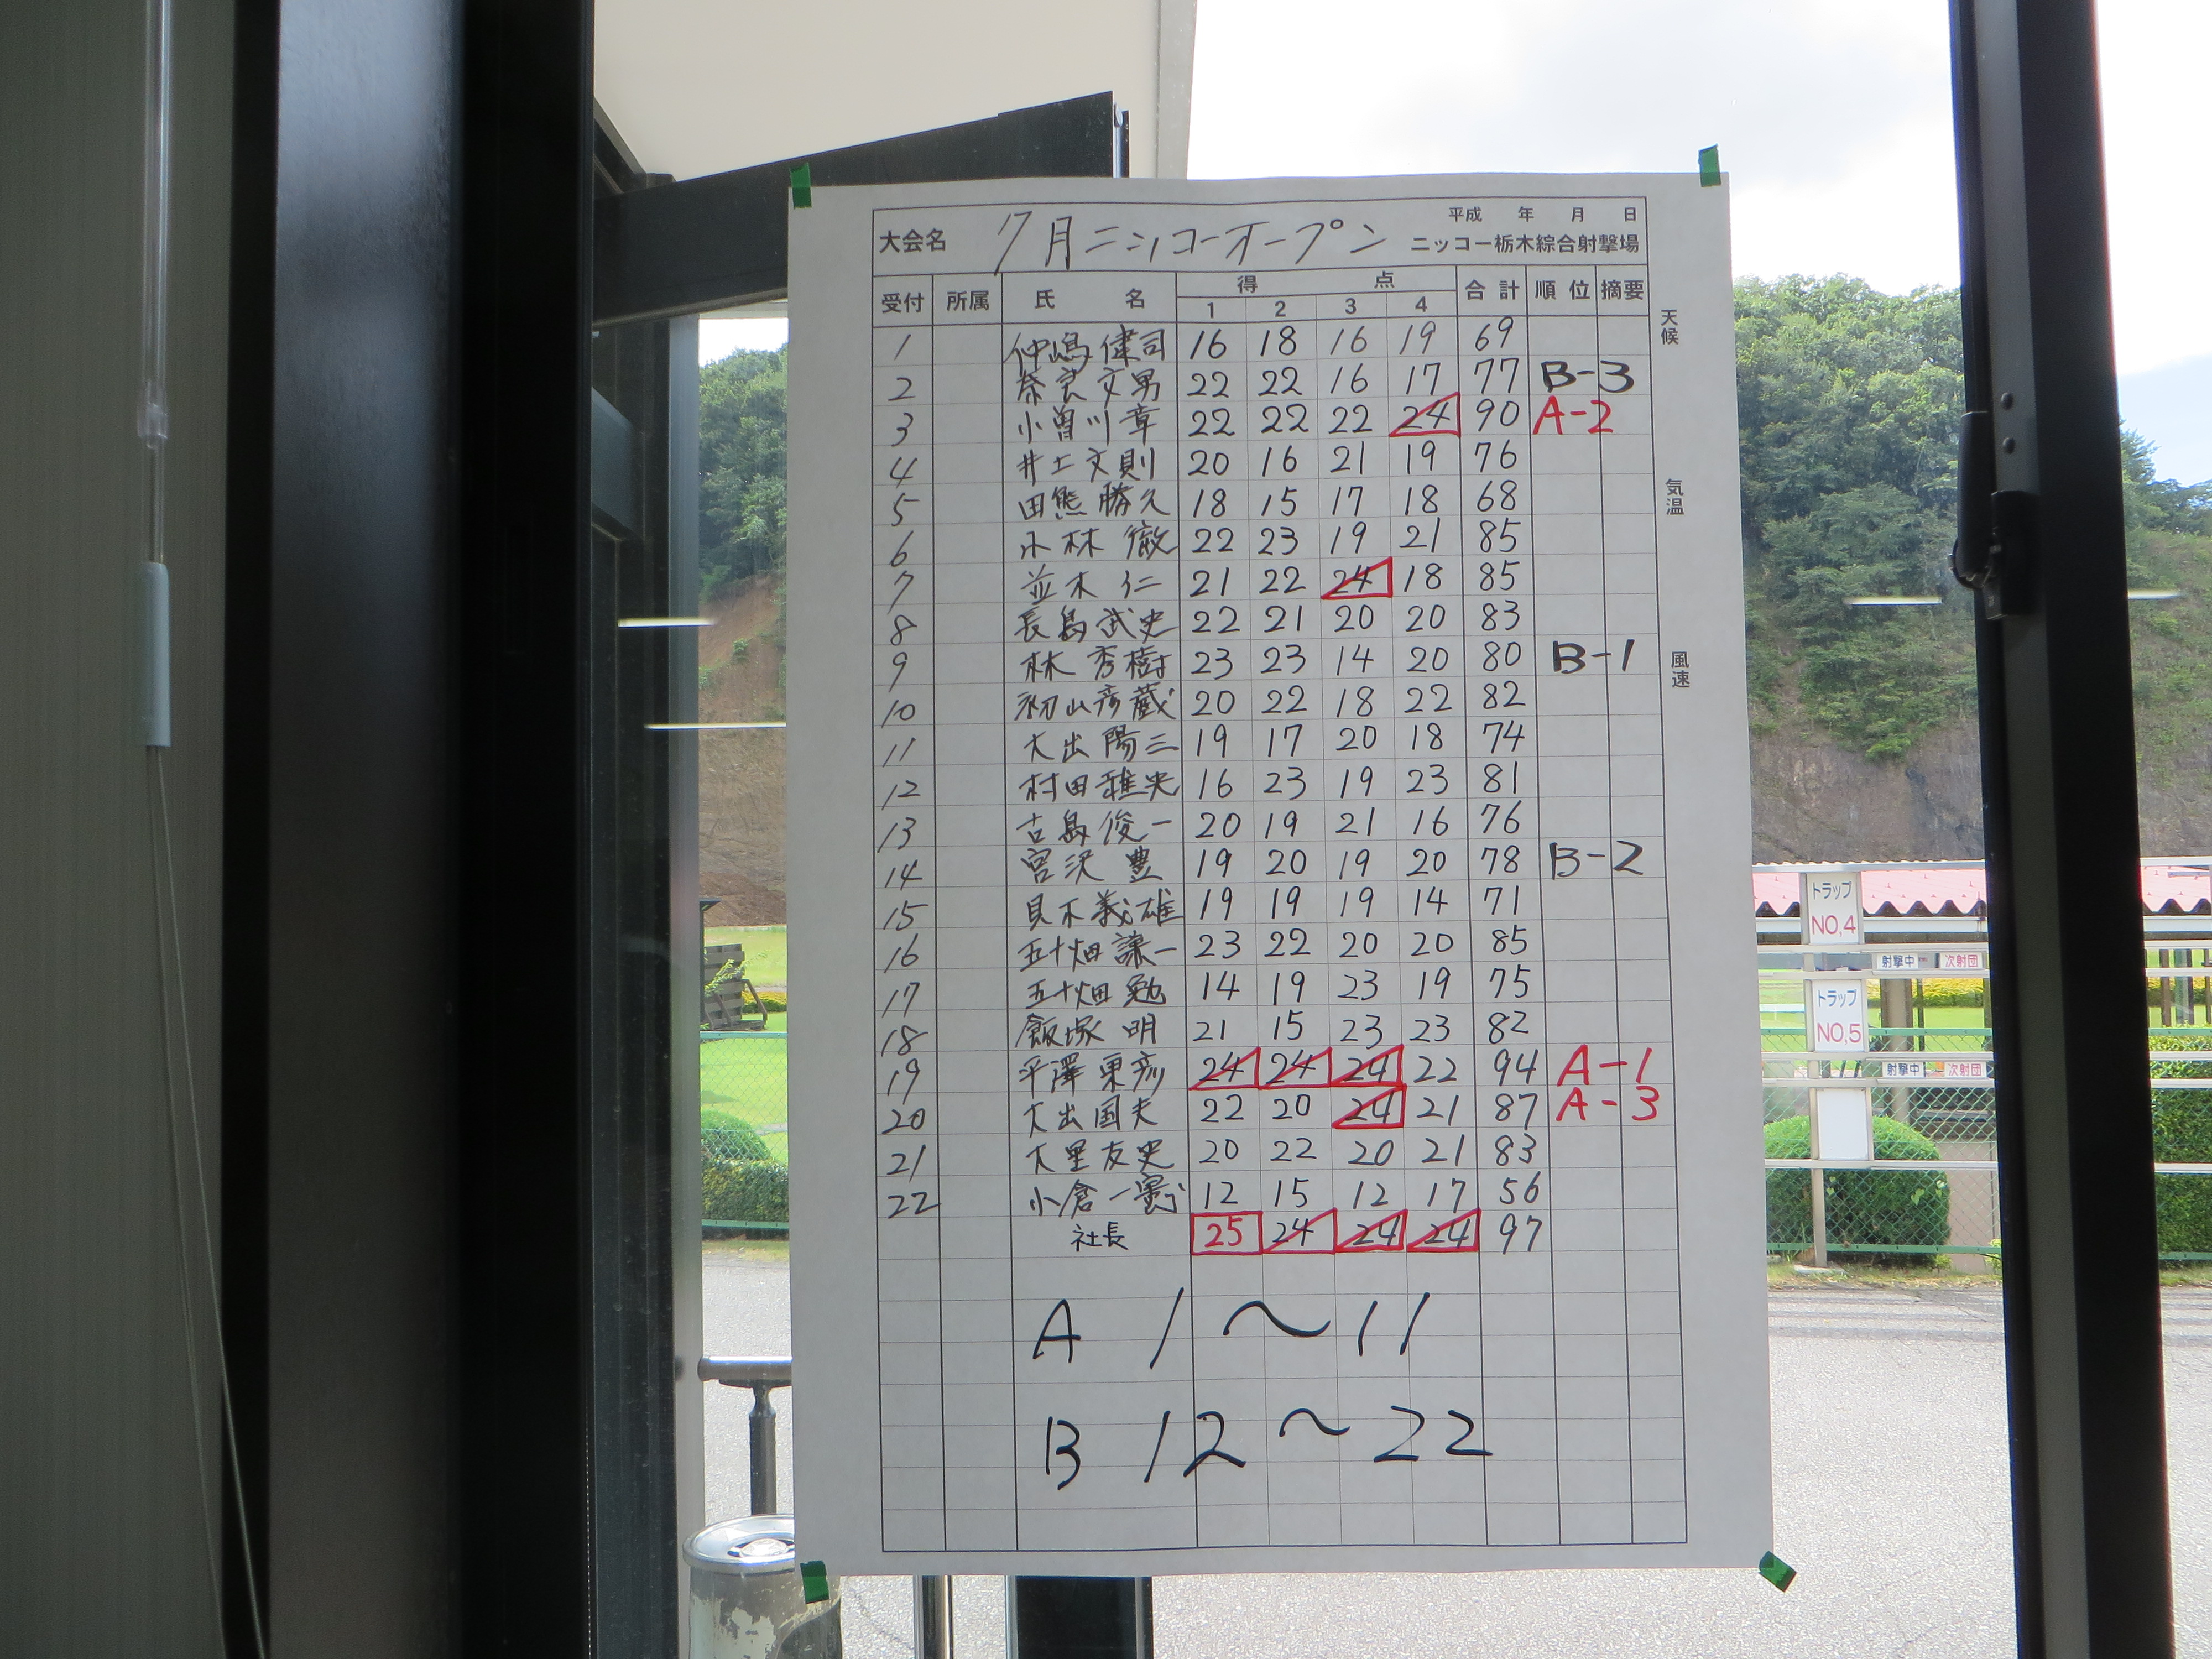 平成 年 月 日
大会名 7月ニッコーオープン ニッコー栃木綜合射撃場
受付 所属 氏 名 得 点 合計 順位 摘要
1 2 3 4
1 仲嶋健司 16 18 16 19 69
2 奈良文男 22 22 16 17 77 B-3
3 小曽川章 22 22 22 24 90 A-2
4 井上文則 20 16 21 19 76
5 田熊勝久 18 15 17 18 68
6 小林徹 22 23 19 21 85
7 並木仁 21 22 24 18 85
8 長島武史 22 21 20 20 83
9 林秀樹 23 23 14 20 80 B-1
10 初山彦蔵 20 22 18 22 82
11 大出陽三 19 17 20 18 74
12 村田雅央 16 23 19 23 81
13 古島俊一 20 19 21 16 76
14 宮沢豊 19 20 19 20 78 B-2
15 貝木義雄 19 19 19 14 71
16 五十畑謙一 23 22 20 20 85
17 五十畑勉 14 19 23 19 75
18 飯塚明 21 15 23 23 82
19 平澤東彦 24 24 24 22 94 A-1
20 大出国夫 22 20 24 21 87 A-3
21 大里友史 20 22 20 21 83
22 小倉一憲 12 15 12 17 56
社長 25 24 24 24 97
A 1〜11
B 12〜22
天候
気温
風速
トラップ
NO,4
射撃中 次射団
トラップ
NO,5
射撃中 次射団